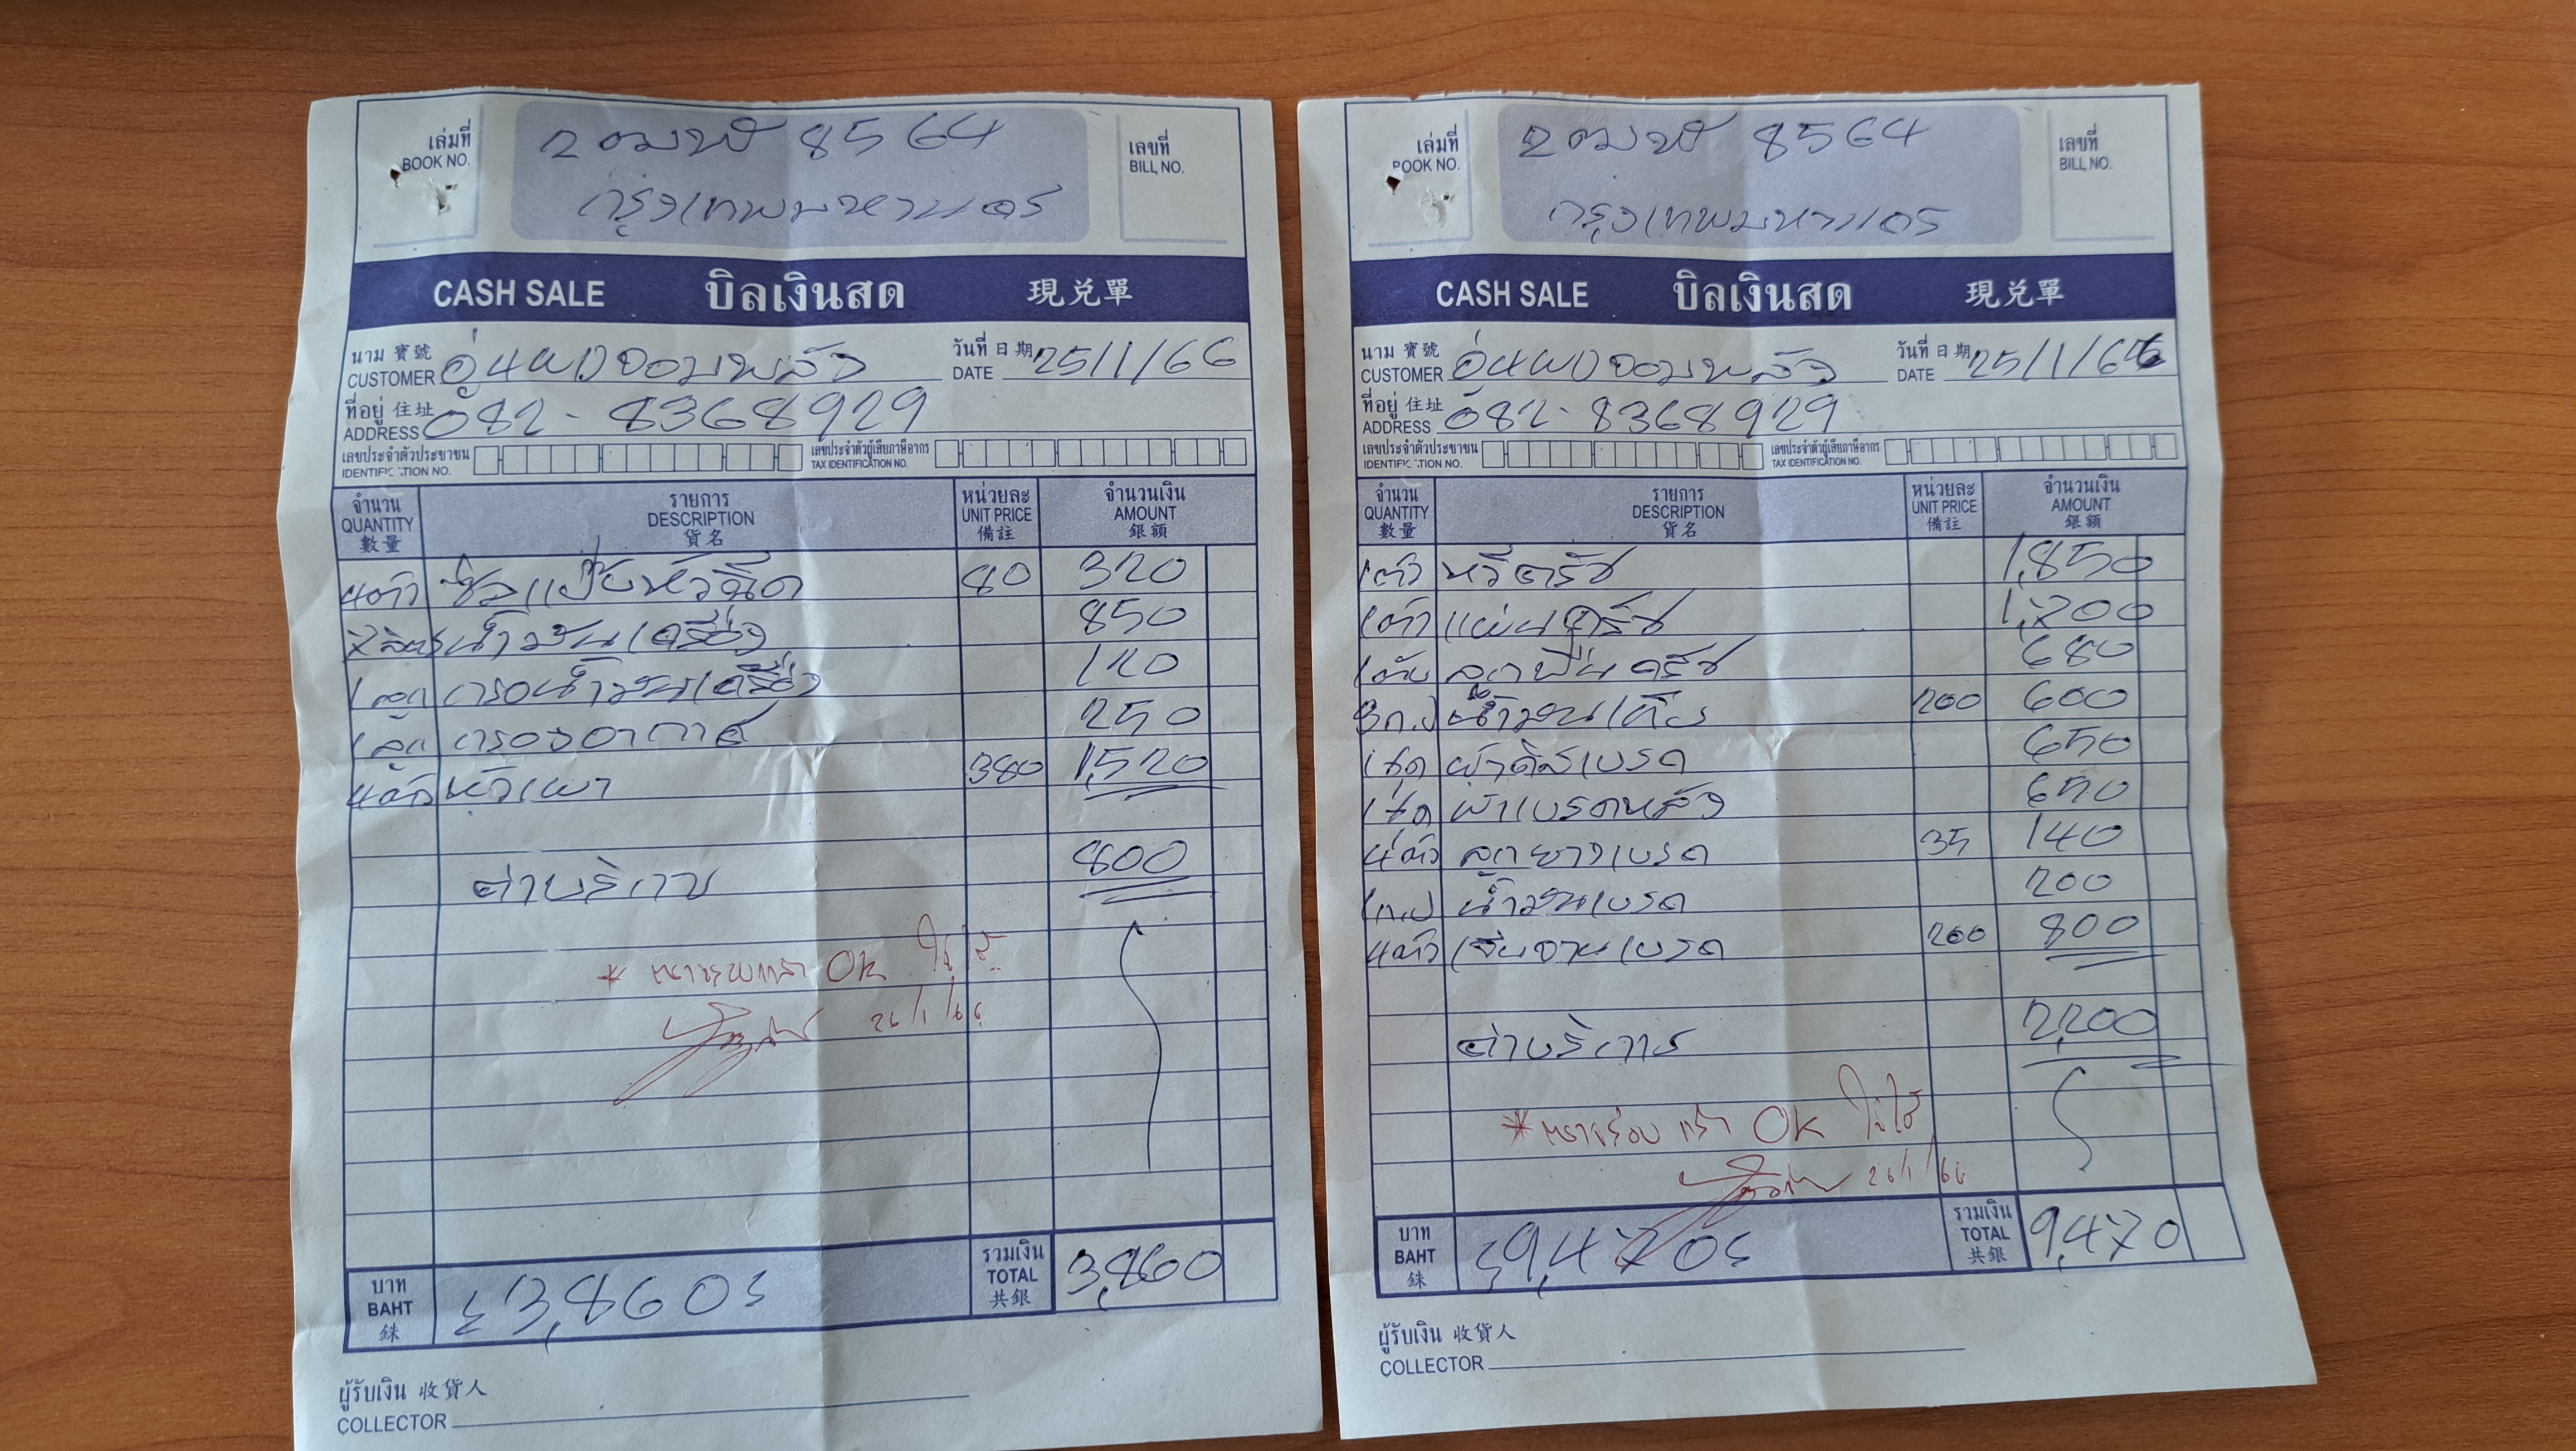 เล่มที่
BOOK NO.
2ฒฬ 8564
กรุงเทพมหานคร
เลขที่
BILL NO.
CASH SALE บิลเงินสด 現兌單
นาม 寶號
CUSTOMER อู่4WDจอมพลัง
วันที่ 日期
DATE 25/1/66
ที่อยู่ 住址
ADDRESS 082-8368929
เลขประจำตัวประชาชน
IDENTIFIC TION NO.
เลขประจำตัวผู้เสียภาษีอากร
TAX IDENTIFICATION NO.
จำนวน รายการ หน่วยละ จำนวนเงิน
QUANTITY DESCRIPTION UNIT PRICE AMOUNT
數量 貨名 備註 銀額
4ตัว ซีลแป๊บหัวฉีด 80 320
7ลิตร น้ำมันเครื่อง 850
1ลูก กรองน้ำมันเครื่อง 120
1ลูก กรองอากาศ 250
4ตัว หัวเผา 380 1,520
ค่าบริการ 800
* OK ใช้ได้
26/1/66
บาท
BAHT
銖
3,860
รวมเงิน
TOTAL
共銀
3,860
ผู้รับเงิน 收貨人
COLLECTOR
เล่มที่
OOK NO.
2ฒฬ 8564
กรุงเทพมหานคร
เลขที่
BILL NO.
CASH SALE บิลเงินสด 現兌單
นาม 寶號
CUSTOMER อู่4WDจอมพลัง
วันที่ 日期
DATE 25/1/66
ที่อยู่ 住址
ADDRESS 082-8368929
เลขประจำตัวประชาชน
IDENTIFIC TION NO.
เลขประจำตัวผู้เสียภาษีอากร
TAX IDENTIFICATION NO.
จำนวน รายการ หน่วยละ จำนวนเงิน
QUANTITY DESCRIPTION UNIT PRICE AMOUNT
數量 貨名 備註 銀額
1ตัว หวีครัช 1,850
1ตัว แผ่นครัช 1,200
1ตับ ลูกปืนครัช 680
3ก.ป น้ำมันเกียร 200 600
1ชุด ผ้าดิสเบรค 650
1ชุด ผ้าเบรคหลัง 650
4ตัว ลูกยางเบรค 35 140
1ก.ป น้ำมันเบรค 200
4ตัว เจียจานเบรค 200 800
ค่าบริการ 2,200
* ตรวจสอบแล้ว OK ใช้ได้
26/1/66
บาท
BAHT
銖
9,470
รวมเงิน
TOTAL
共銀
9,470
ผู้รับเงิน 收貨人
COLLECTOR